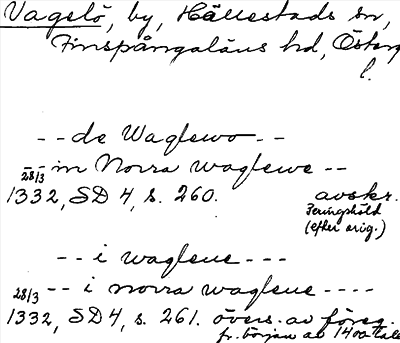 Vagelö, by, Hällestads sn,
Finspångaläns hd, Österg
l.
-- de Waglewo --
-- in Norra waglewe --
28/3
1332, SD 4, s. 260. avskr.
Peringskiöld
(efter orig.)
-- i waglene ---
28/3 -- i norra waglene ----
1332, SD 4, s. 261. övers. av föreg.
fr. början av 1400-tale